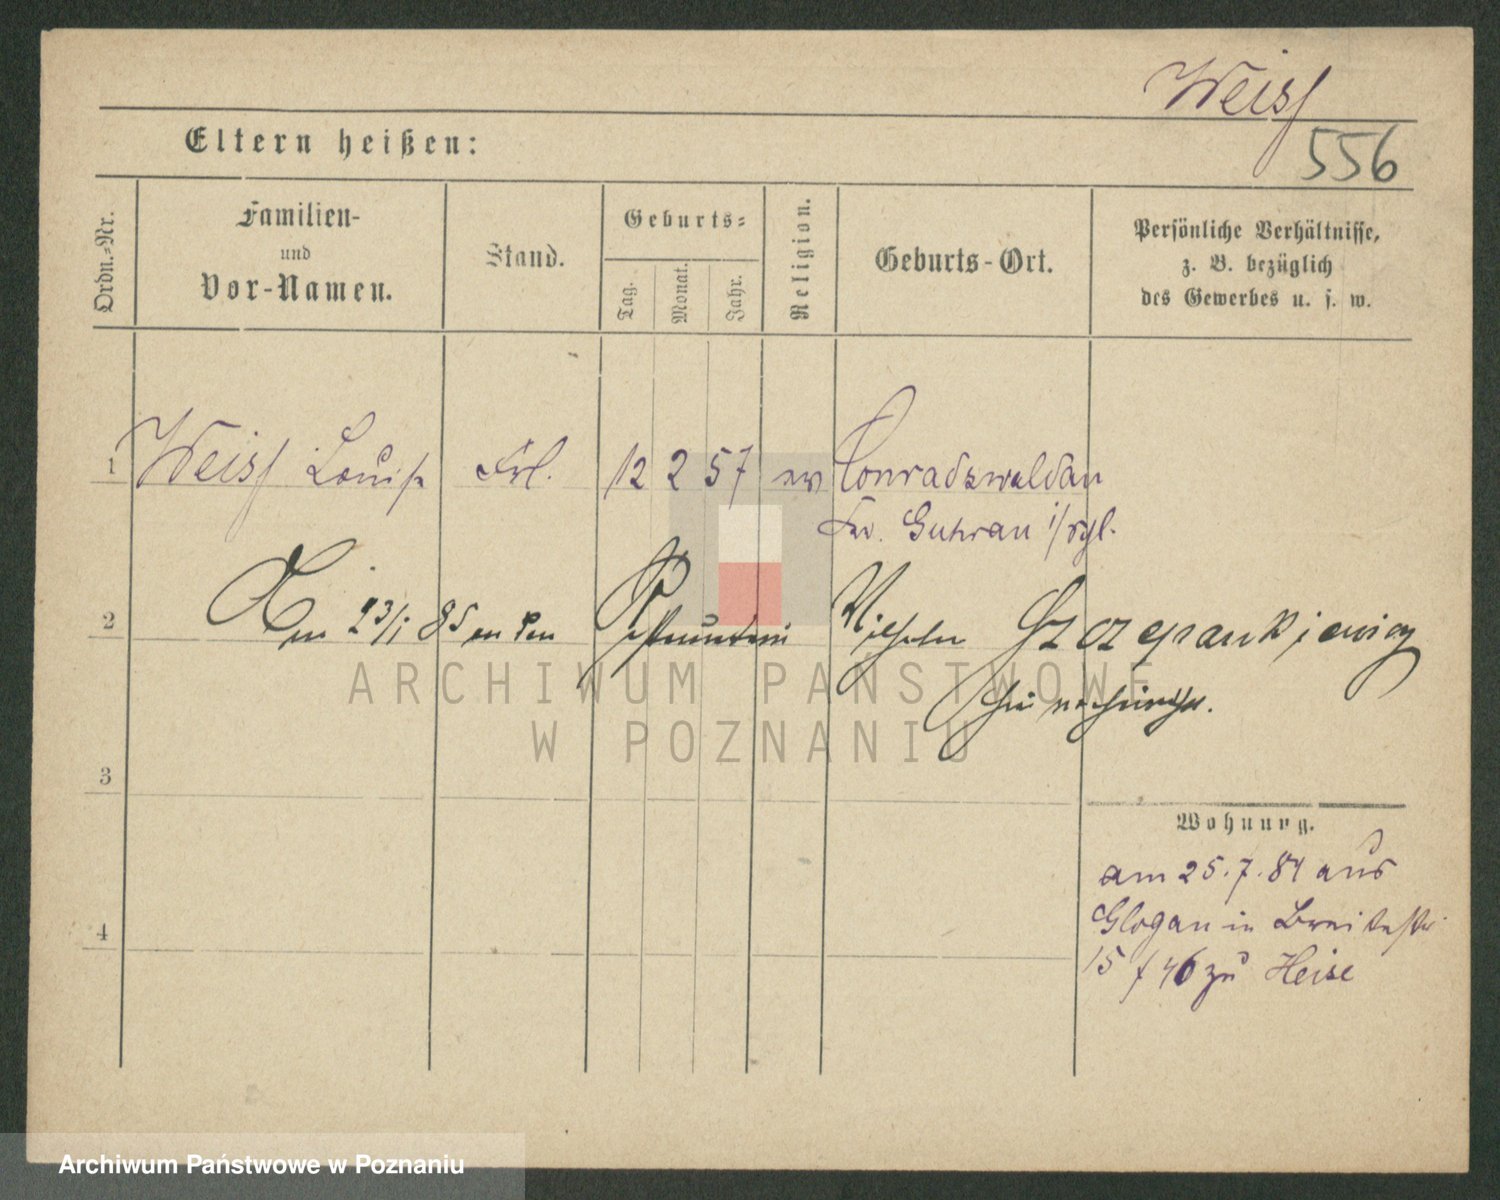 Weiss
556
Eltern heißen:
Ordn.-Nr.
Familien-
und
Vor-Namen.
Stand.
Geburts-
Tag.
Monat.
Jahr.
Religion.
Geburts-Ort.
Persönliche Verhältnisse,
z. B. bezüglich
des Gewerbes u. s. w.
1 Weiss Louise Frl. 12 2 57 ev Conradswaldau
Kr. Guhrau i/Schl.
2 Am 23/1 85 an den Wilhelm Szczepankiewicz
3
4
Wohnung.
am 25.7.84 aus
Glogau in Breitestr.
15 f 46 zu Heise
ARCHIWUM PAŃSTWOWE
W POZNANIU
Archiwum Państwowe w Poznaniu